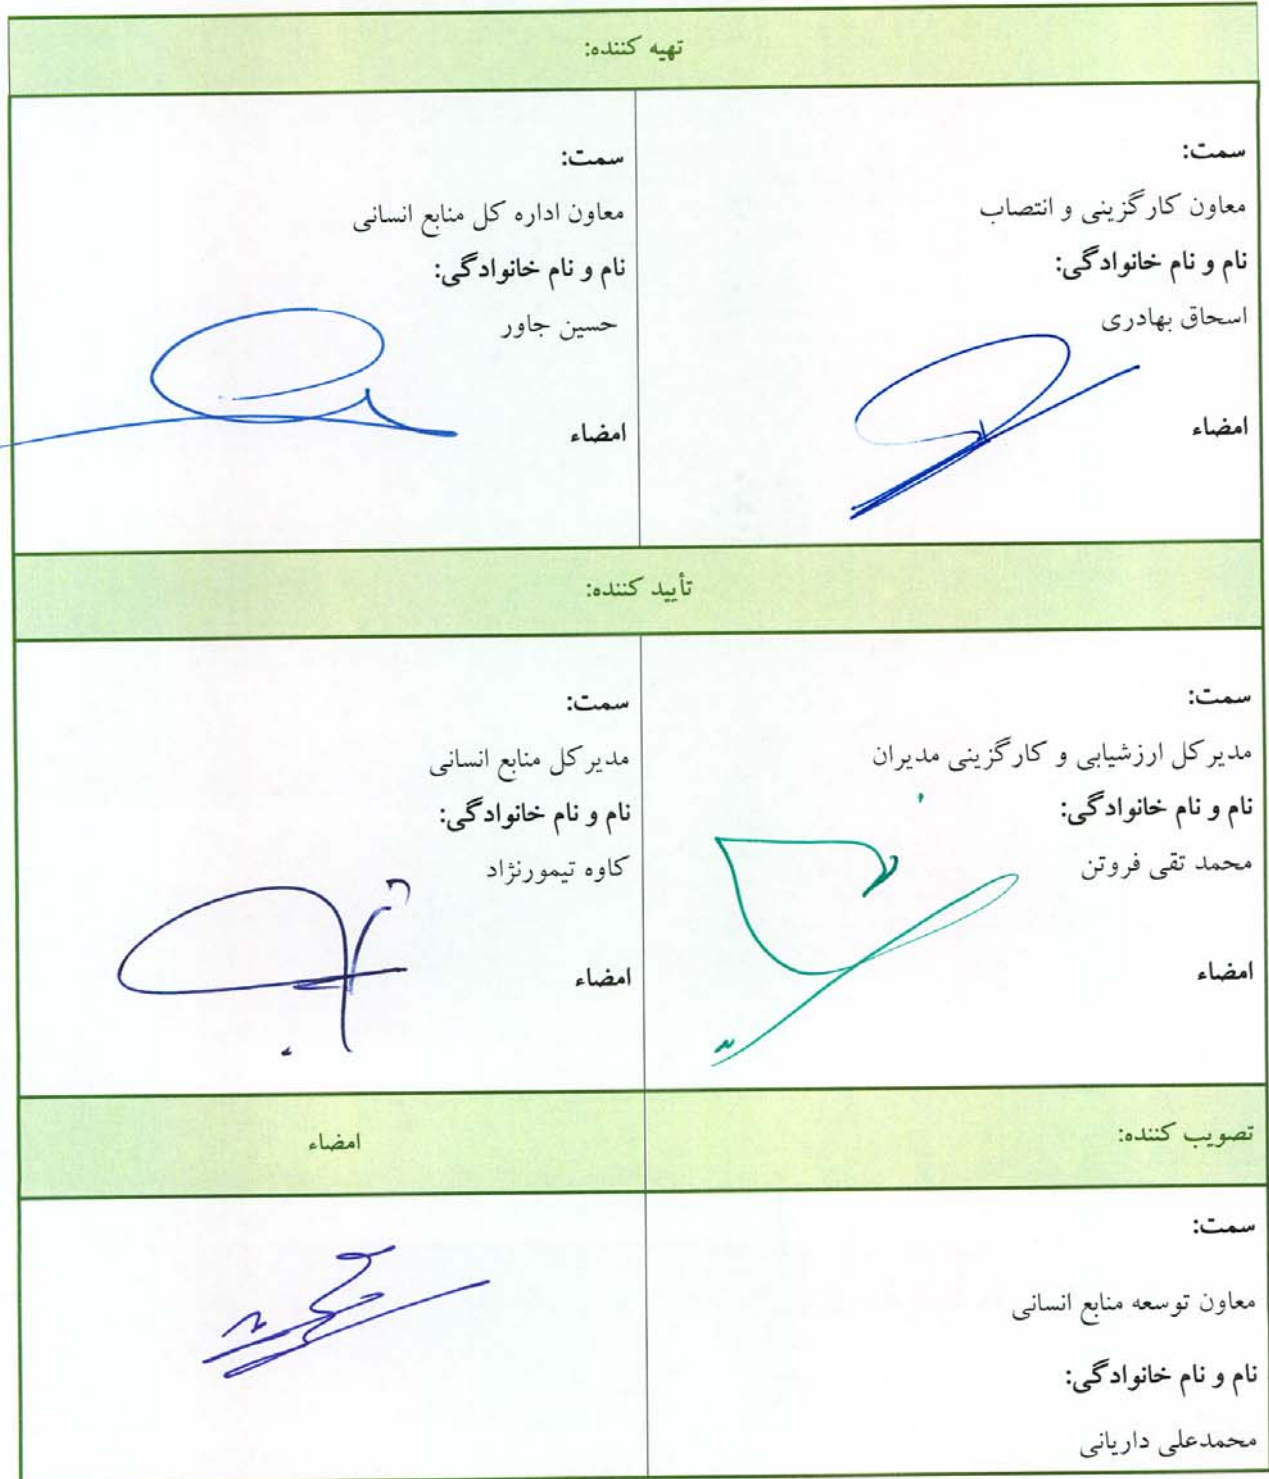 تهیه کننده:
سمت:
معاون کارگزینی و انتصاب
نام و نام خانوادگی:
اسحاق بهادری
امضاء
سمت:
معاون اداره کل منابع انسانی
نام و نام خانوادگی:
حسین جاور
امضاء
تأیید کننده:
سمت:
مدیرکل ارزشیابی و کارگزینی مدیران
نام و نام خانوادگی:
محمد تقی فروتن
امضاء
سمت:
مدیرکل منابع انسانی
نام و نام خانوادگی:
کاوه تیمورنژاد
امضاء
تصویب کننده:
امضاء
سمت:
معاون توسعه منابع انسانی
نام و نام خانوادگی:
محمدعلی داریانی